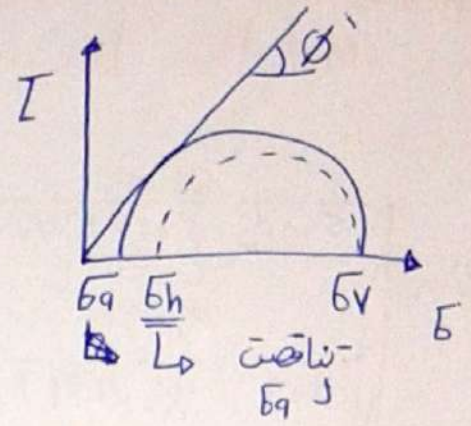 τ
φ'
σa σh σv σ
↳ تناقصت
ل σa